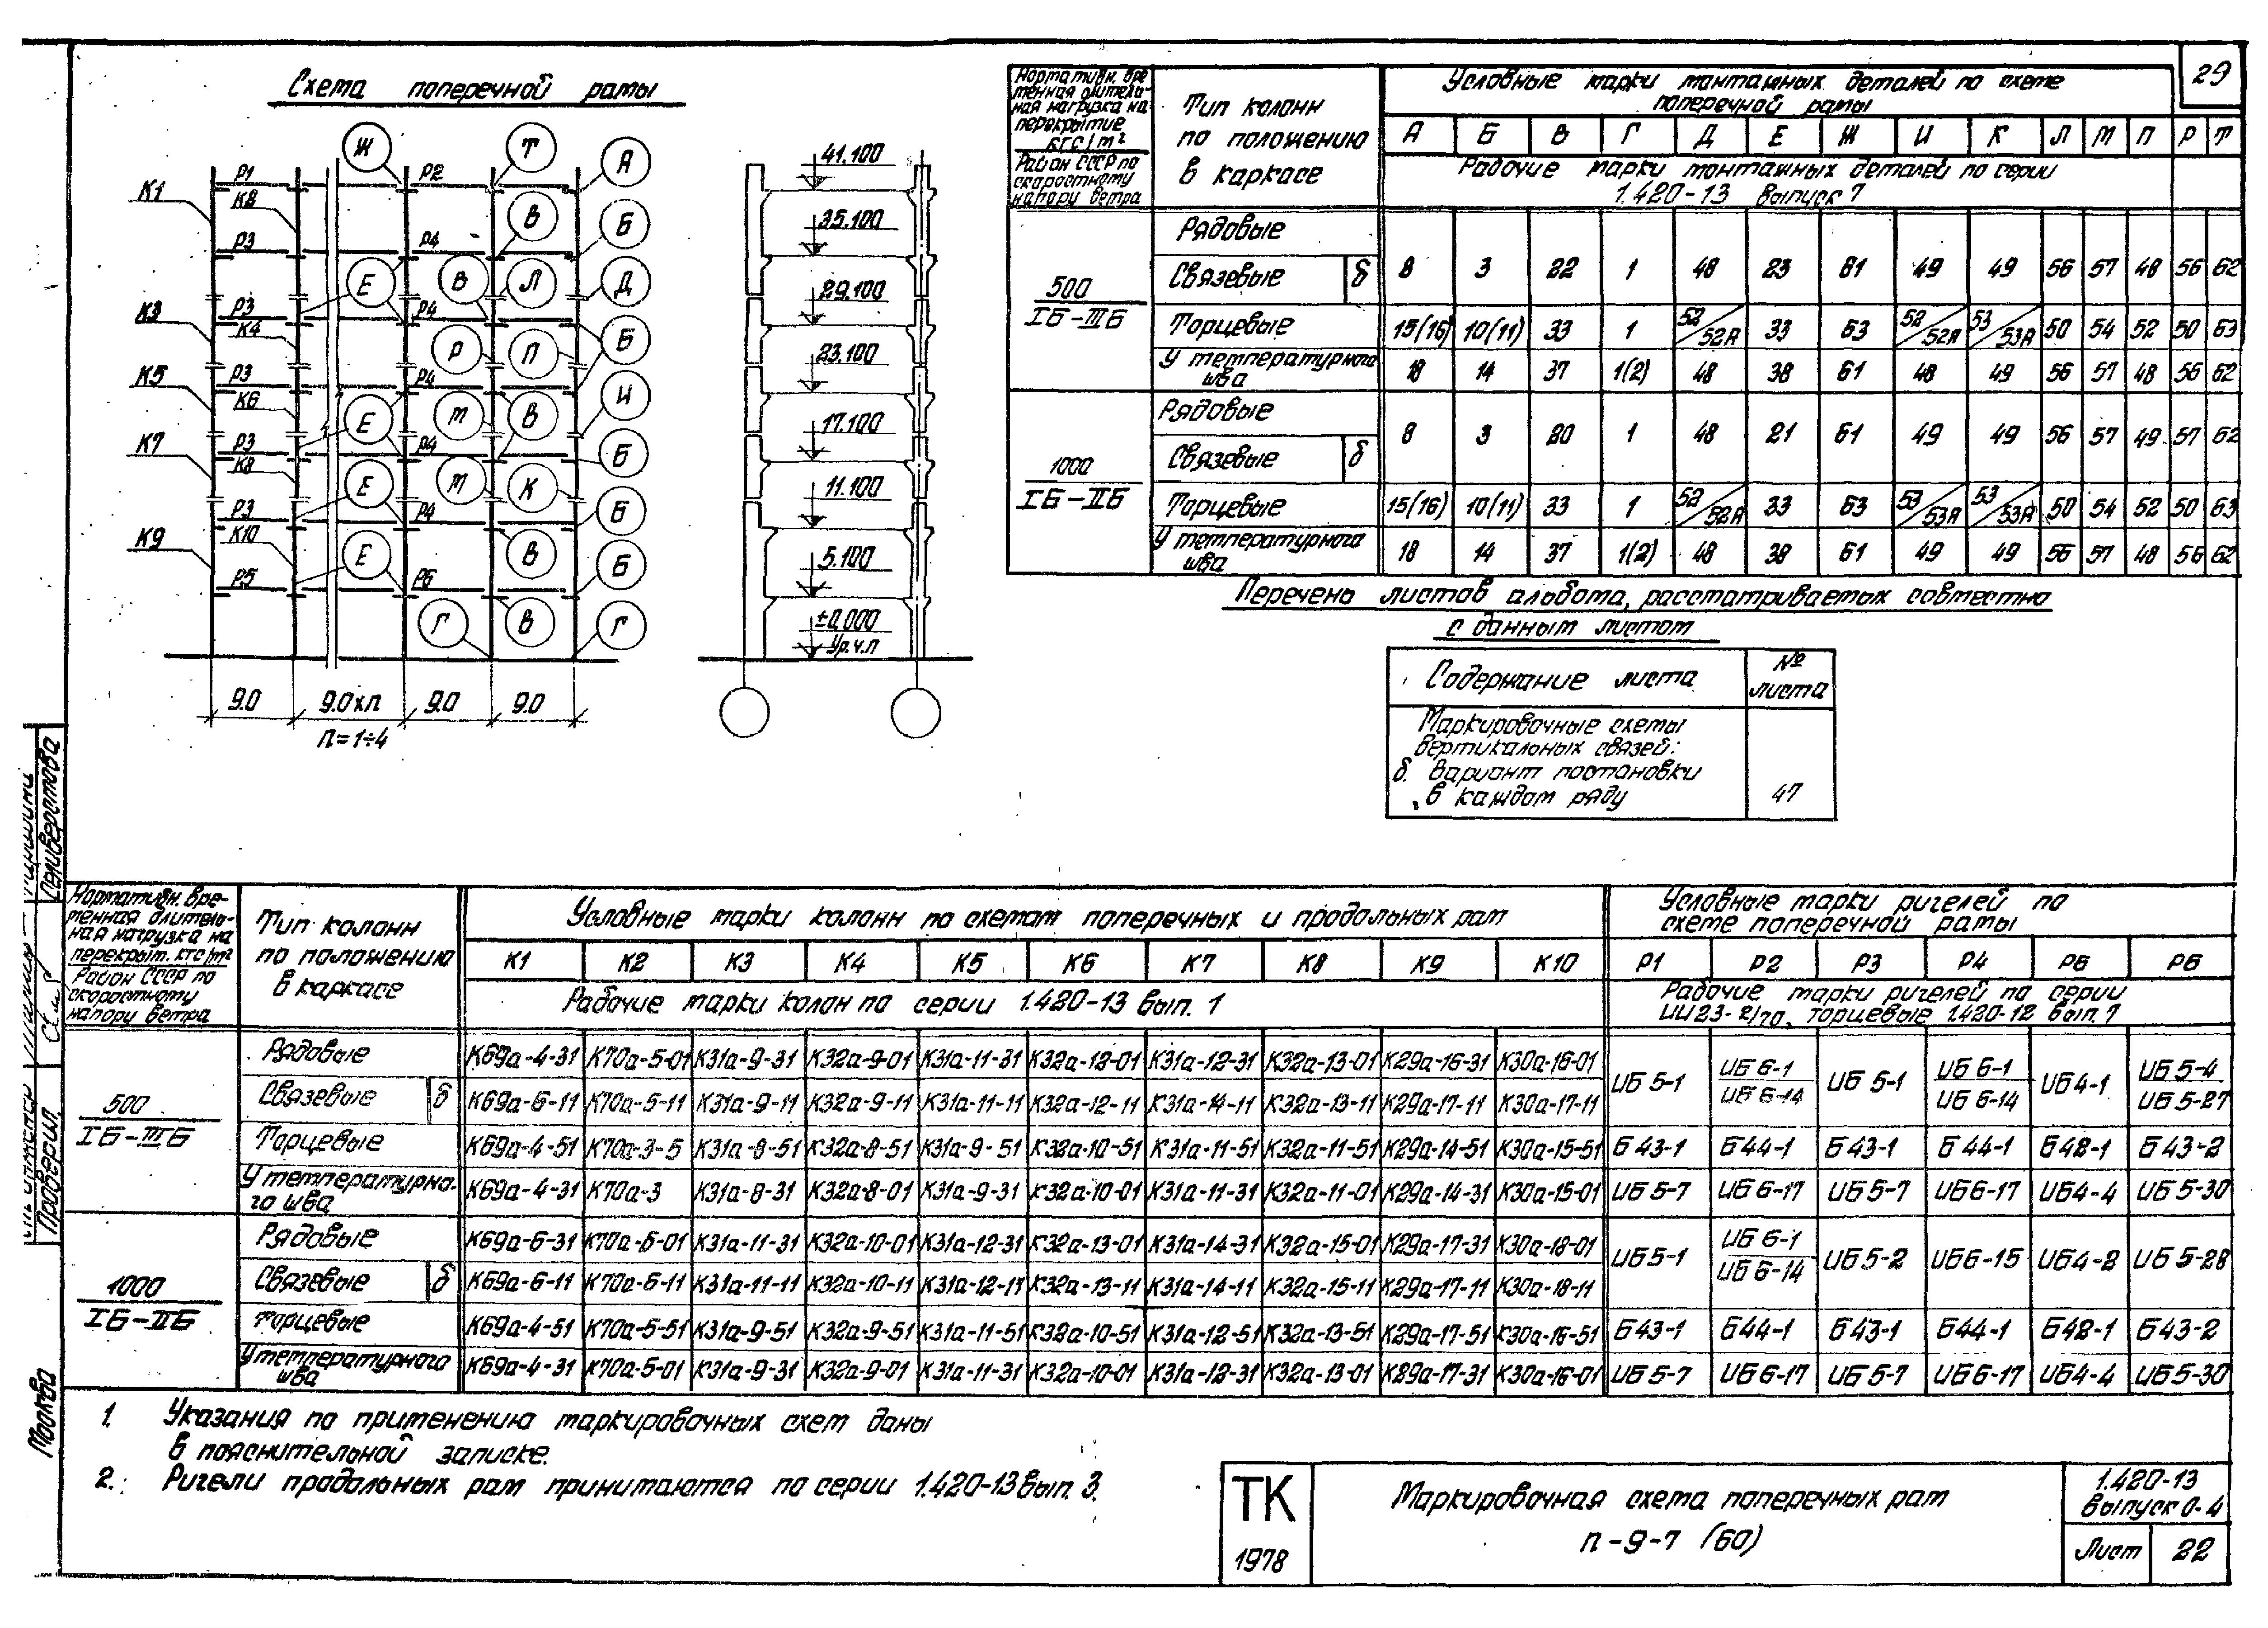 29
Схема поперечной рамы
Ж Т А
Р1 Р2
К1 К2
В Б
Р3 Р4
Е В Л Д
К3 Р3 К4 Р4
Р П Б
К5 Р3 К6 Р4
Е М В И
К7 Р3 К8 Р4
Е М К Б
К9 Р3 К10 Р4
Е В Б
Р5 Р6
Г В Б Г
9.0 9.0хп 9.0 9.0
п=1÷4
41.100
35.100
29.100
23.100
17.100
11.100
5.100
±0.000
Ур.ч.п
Нормативн. временная длительная нагрузка на перекрытие кгс/м²
Район СССР по скоростному напору ветра
Тип колонн по положению в каркасе
Условные марки монтажных деталей по схеме поперечной рамы
А Б В Г Д Е Ж И К Л М П Р Т
Рабочие марки монтажных деталей по серии 1.420-13 Выпуск 7
500
IБ-IIIБ
Рядовые
Связевые б 8 3 22 1 48 23 61 49 49 56 57 48 56 62
Торцевые 15(16) 10(11) 33 1 52/52А 33 63 52/52А 53/53А 50 54 52 50 63
У температурного шва 18 14 37 1(2) 48 38 61 48 49 56 57 48 56 62
1000
IБ-IIБ
Рядовые
Связевые б 8 3 20 1 48 21 61 49 49 56 57 49 57 62
Торцевые 15(16) 10(11) 33 1 52/52А 33 63 53/53А 53/53А 50 54 52 50 63
У температурного шва 18 14 37 1(2) 48 38 61 49 49 56 57 48 56 62
Перечень листов альбома, рассматриваемых совместно
с данным листом
Содержание листа № листа
Маркировочные схемы
вертикальных связей:
б. Вариант постановки
в каждом ряду 47
Нормативн. временная длительная нагрузка на перекрыт. кгс/м²
Район СССР по скоростному напору ветра
Тип колонн по положению в каркасе
Условные марки колонн по схемам поперечных и продольных рам
Условные марки ригелей по схеме поперечной рамы
К1 К2 К3 К4 К5 К6 К7 К8 К9 К10 Р1 Р2 Р3 Р4 Р5 Р6
Рабочие марки колон по серии 1.420-13 вып. 1
Рабочие марки ригелей по серии ИИ23-2/70, торцевые 1.420-12 вып. 7
500
IБ-IIIБ
Рядовые К69а-4-31 К70а-5-01 К31а-9-31 К32а-9-01 К31а-11-31 К32а-12-01 К31а-12-31 К32а-13-01 К29а-16-31 К30а-16-01
ИБ 5-1 ИБ 6-1/ИБ 6-14 ИБ 5-1 ИБ 6-1/ИБ 6-14 ИБ4-1 ИБ 5-4/ИБ 5-27
Связевые б К69а-6-11 К70а-5-11 К31а-9-11 К32а-9-11 К31а-11-11 К32а-12-11 К31а-14-11 К32а-13-11 К29а-17-11 К30а-17-11
Торцевые К69а-4-51 К70а-3-5 К31а-8-51 К32а-8-51 К31а-9-51 К32а-10-51 К31а-11-51 К32а-11-51 К29а-14-51 К30а-15-51 Б 43-1 Б44-1 Б 43-1 Б 44-1 Б42-1 Б43-2
У температурного шва К69а-4-31 К70а-3 К31а-8-31 К32а-8-01 К31а-9-31 К32а-10-01 К31а-11-31 К32а-11-01 К29а-14-31 К30а-15-01 ИБ 5-7 ИБ 6-17 ИБ 5-7 ИБ6-17 ИБ4-4 ИБ 5-30
1000
IБ-IIБ
Рядовые К69а-6-31 К70а-6-01 К31а-11-31 К32а-10-01 К31а-12-31 К32а-13-01 К31а-14-31 К32а-15-01 К29а-17-31 К30а-18-01
ИБ 5-1 ИБ 6-1/ИБ 6-14 ИБ 5-2 ИБ6-15 ИБ4-2 ИБ 5-28
Связевые б К69а-6-11 К70а-6-11 К31а-11-11 К32а-10-11 К31а-12-11 К32а-13-11 К31а-14-11 К32а-15-11 К29а-17-11 К30а-18-11
Торцевые К69а-4-51 К70а-5-51 К31а-9-51 К32а-9-51 К31а-11-51 К32а-10-51 К31а-12-51 К32а-13-51 К29а-17-51 К30а-16-51 Б43-1 Б44-1 Б43-1 Б44-1 Б42-1 Б43-2
У температурного шва К69а-4-31 К70а-5-01 К31а-9-31 К32а-9-01 К31а-11-31 К32а-10-01 К31а-12-31 К32а-13-01 К29а-17-31 К30а-16-01 ИБ 5-7 ИБ6-17 ИБ 5-7 ИБ6-17 ИБ4-4 ИБ5-30
1. Указания по применению маркировочных схем даны
в пояснительной записке.
2. Ригели продольных рам принимаются по серии 1.420-13 вып. 3.
ТК
1978
Маркировочная схема поперечных рам
п-9-7 (60)
1.420-13
Выпуск 0-4
Лист 22
Селивёрстова
Проверил
Москва